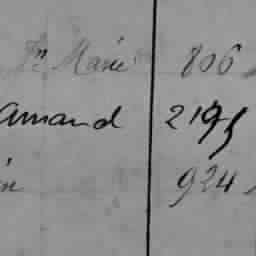 Jn Marie 806
amand 2195
in 924